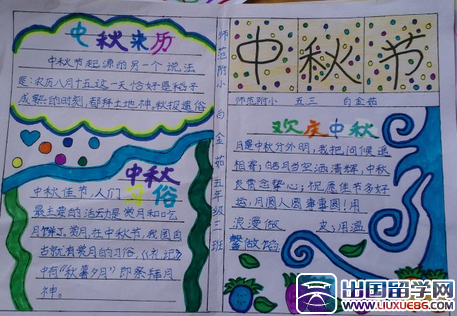 中秋来历
中秋节起源的另一个说法
是：农历八月十五这一天恰好是稻子
成熟的时刻，都拜土地神。秋报遗俗
中秋
习俗
中秋佳节，人们
最主要的活动是赏月和吃
月饼了。赏月在中秋节，我国自
古就有赏月的习俗，《礼记》
中有“秋暮夕月”即祭拜月
神。
师范附小 白金茹 五年级三班
中秋节
师范附小 五三 白金茹
欢庆中秋
月是中秋分外明，我把问候送
祖寄；皓月当空洒清辉，中秋
良宵念挚心；祝愿佳节多好
运，月圆人圆事事圆！用
浪漫做 皮，用温
馨做馅
出国留学网
WWW.LIUXUE86.COM